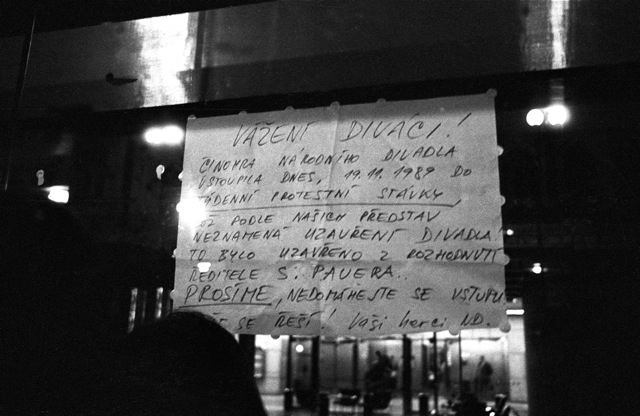 VÁŽENÍ DIVÁCI!
ČINOHRA NÁRODNÍHO DIVADLA
VSTOUPILA DNES, 19.11.1989 DO
TÝDENNÍ PROTESTNÍ STÁVKY,
COŽ PODLE NAŠICH PŘEDSTAV
NEZNAMENÁ UZAVŘENÍ DIVADLA!
TO BYLO UZAVŘENO Z ROZHODNUTÍ
ŘEDITELE S. PAUERA.
PROSÍME, NEDOMÁHEJTE SE VSTUPU
SE ŘEŠÍ! Vaši herci ND.